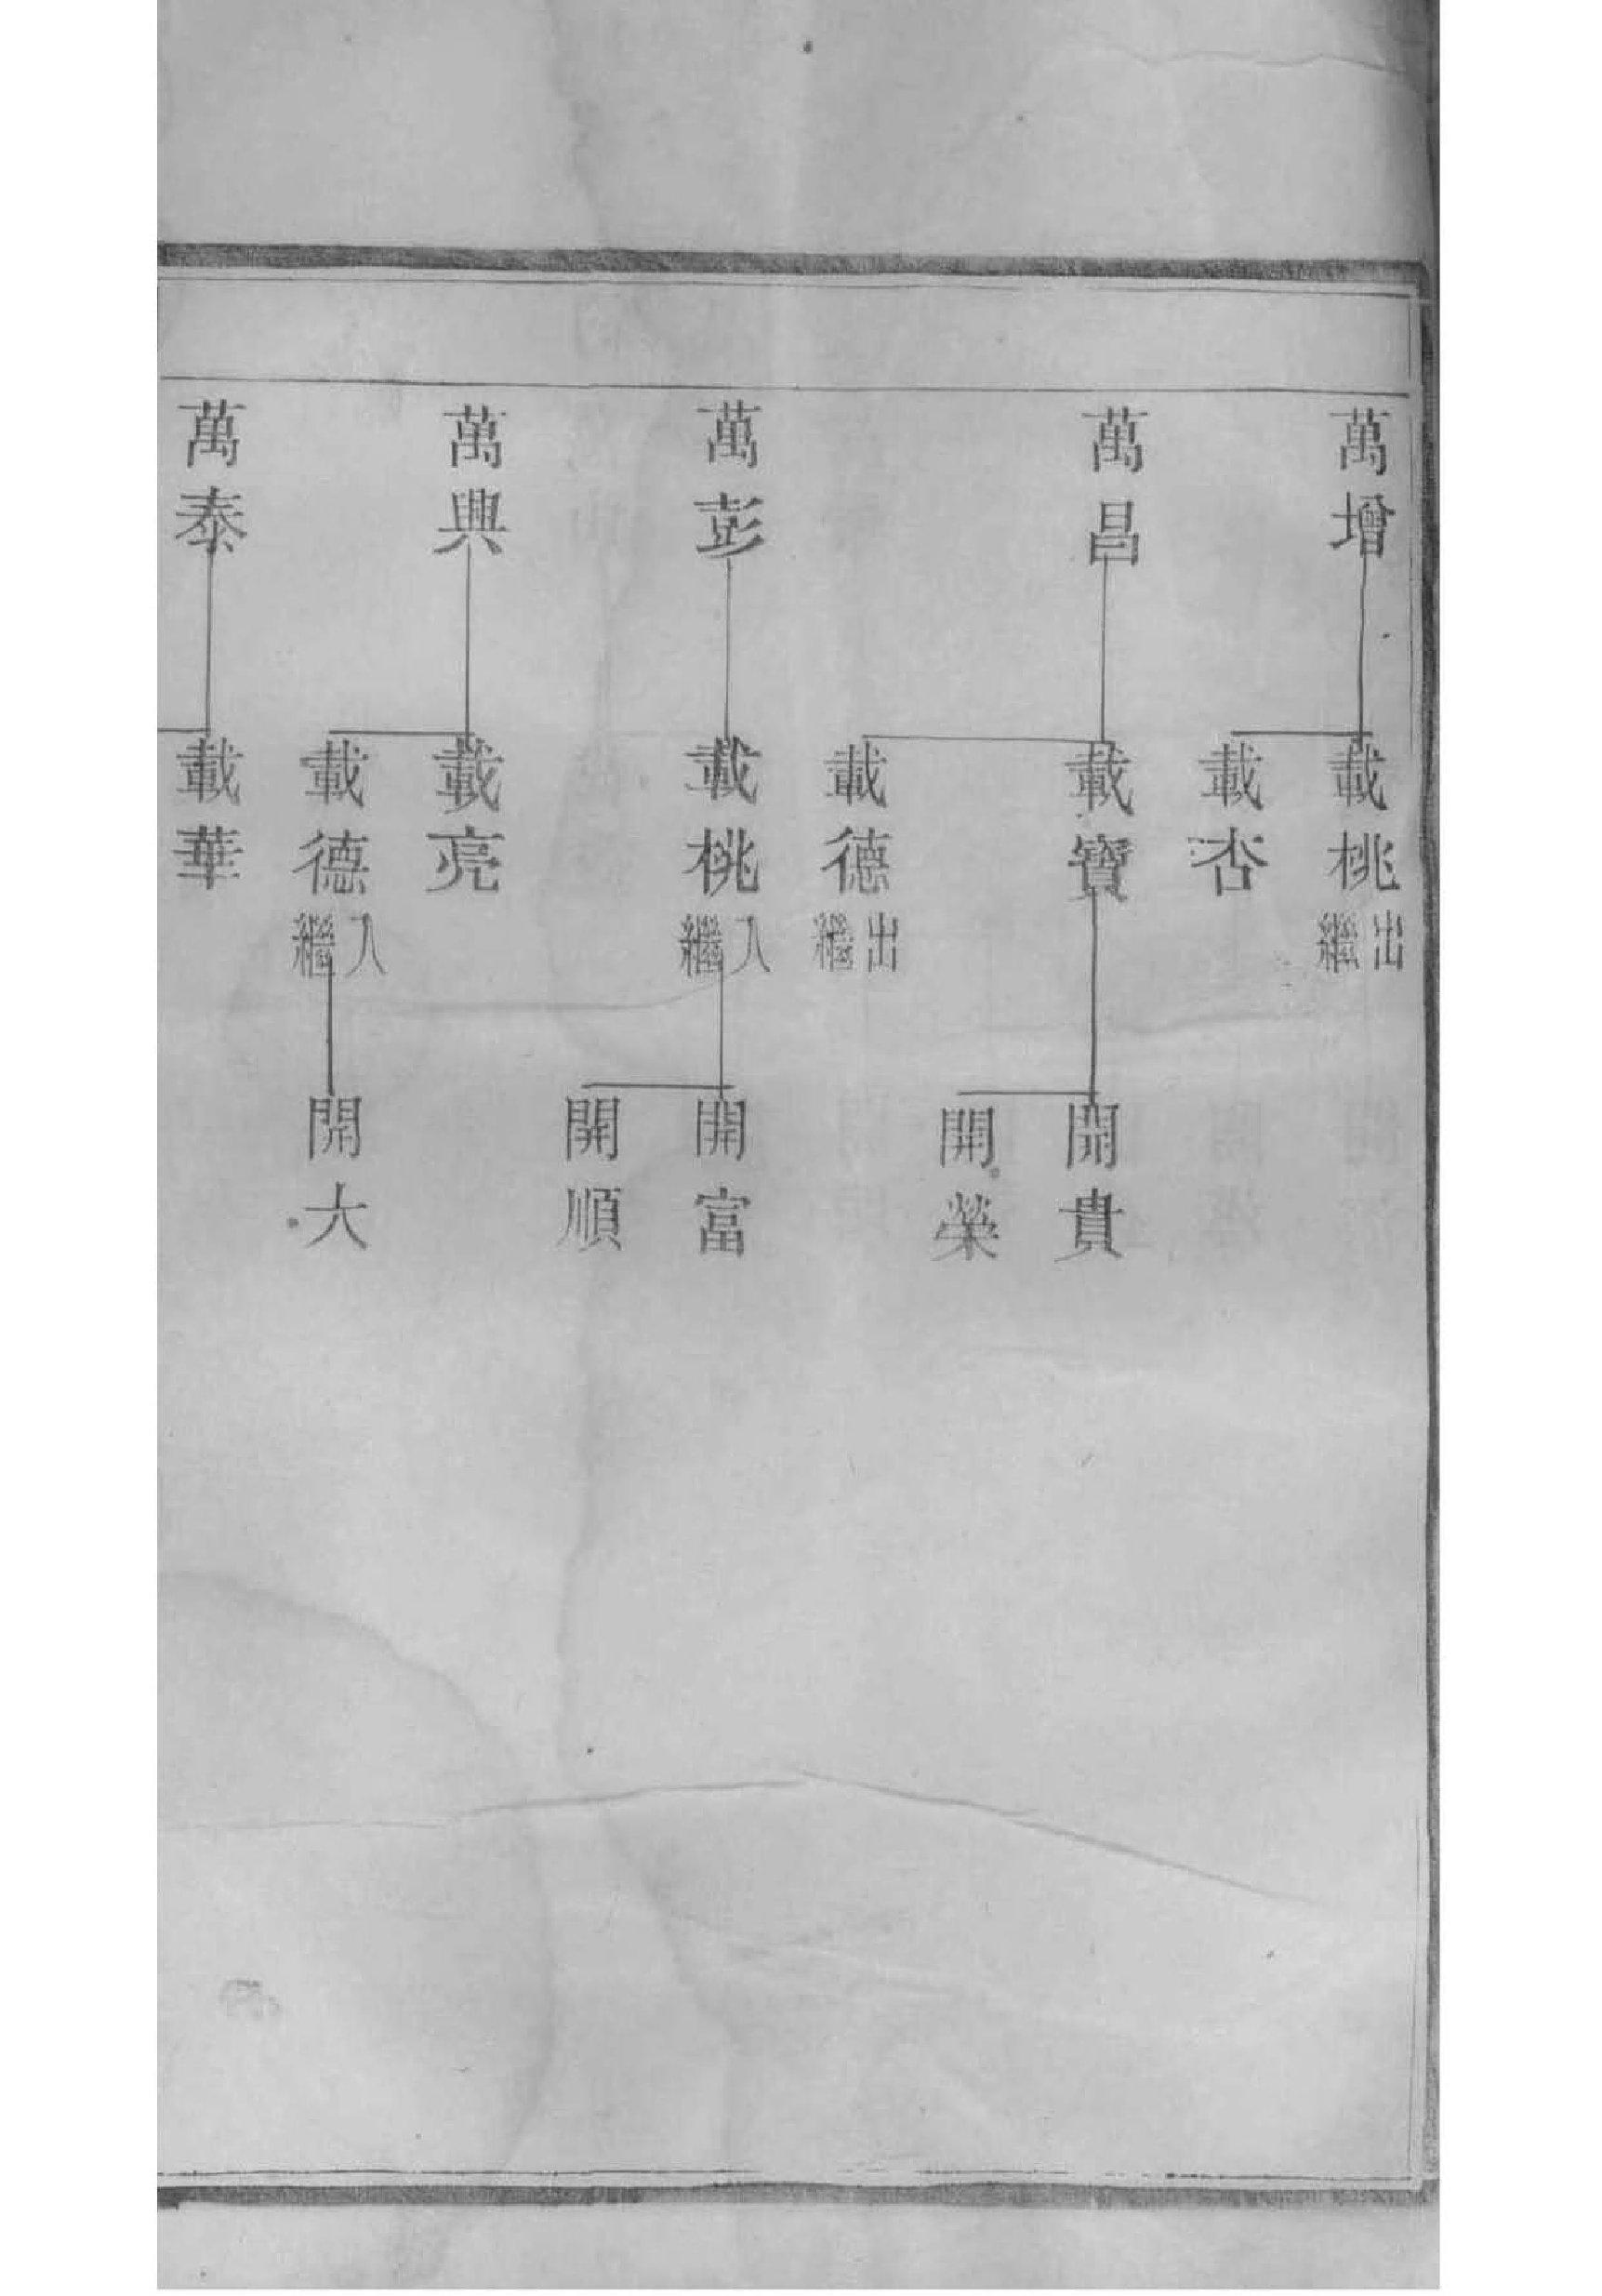 萬增
載桃出繼
載杏
萬昌
載寶
開貴
開榮
載德出繼
萬彭
載桃入繼
開富
開順
萬興
載亮
載德入繼
開大
萬泰
載華